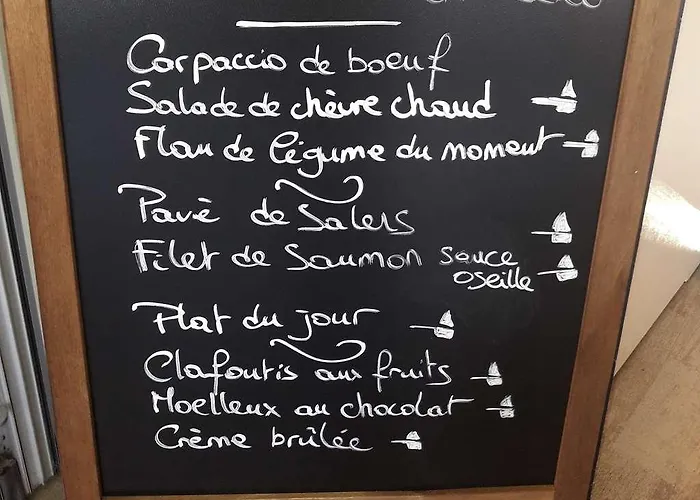 Carpaccio de boeuf
Salade de chèvre chaud
Flan de légume du moment
Pavè de Salers
Filet de Saumon sauce
oseille
Plat du jour
Clafoutis aux fruits
Moelleux au chocolat
Crème brûlée